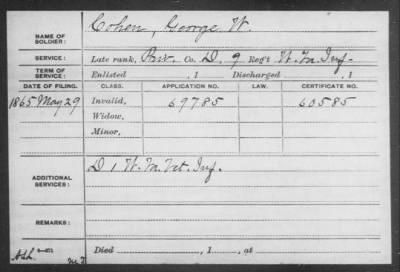 NAME OF SOLDIER: Cohen, George W.
SERVICE: Late rank, Priv. Co. D, 9 Reg't W. Va. Inf.
TERM OF SERVICE: Enlisted , 1 Discharged , 1
DATE OF FILING. CLASS. APPLICATION NO. LAW. CERTIFICATE NO.
1865 May 29 Invalid, 69785 60585
Widow,
Minor,
ADDITIONAL SERVICES: D 1 W. Va. Vet. Inf.
REMARKS:
Died , 1 , at